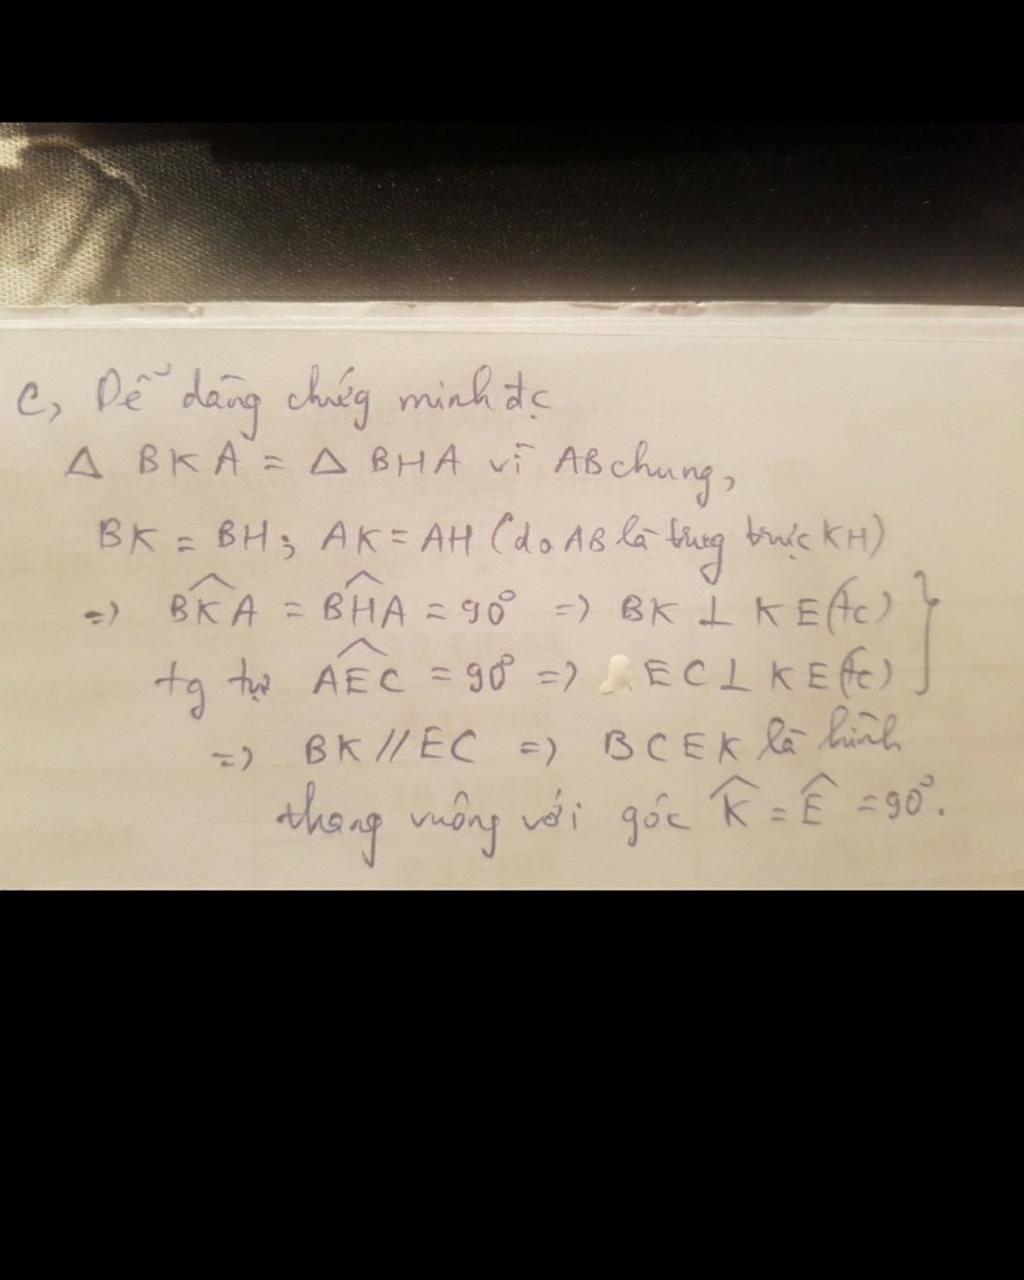 c, Dễ dàng chứg minh đc
Δ BKA = Δ BHA vì AB chung,
BK = BH; AK = AH (do AB là trung trực KH)
=> \widehat{BKA} = \widehat{BHA} = 90° => BK ⊥ KE (tc)
tg tự \widehat{AEC} = 90° => EC ⊥ KE (tc)
=> BK // EC => BCEK là hình
thang vuông với góc \widehat{K} = \widehat{E} = 90°.